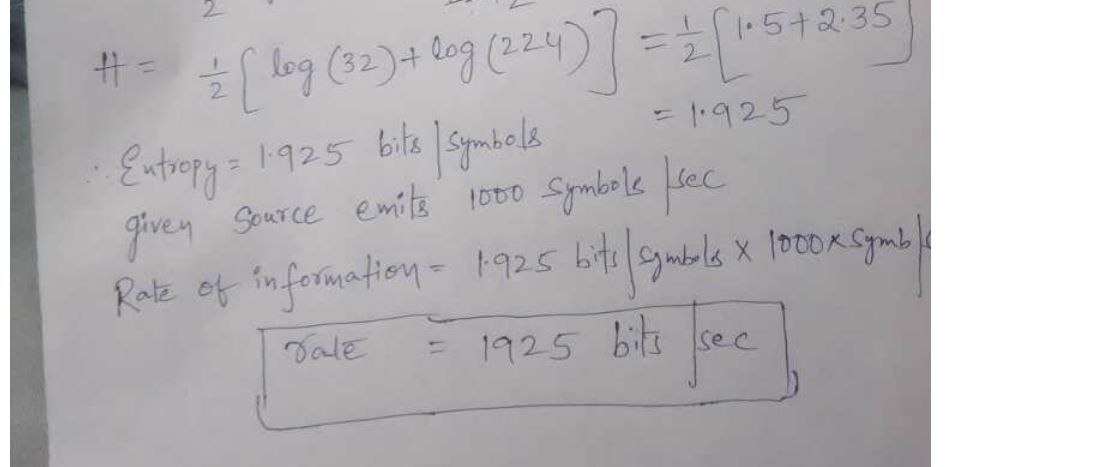 2
H = 1/2 [ log (32) + log (224) ] = 1/2 [ 1.5 + 2.35 ]
= 1.925
∴ Entropy = 1.925 bits | symbols
given Source emits 1000 symbols | sec
Rate of information = 1.925 bits | symbols x 1000 x Symb |
rate = 1925 bits | sec